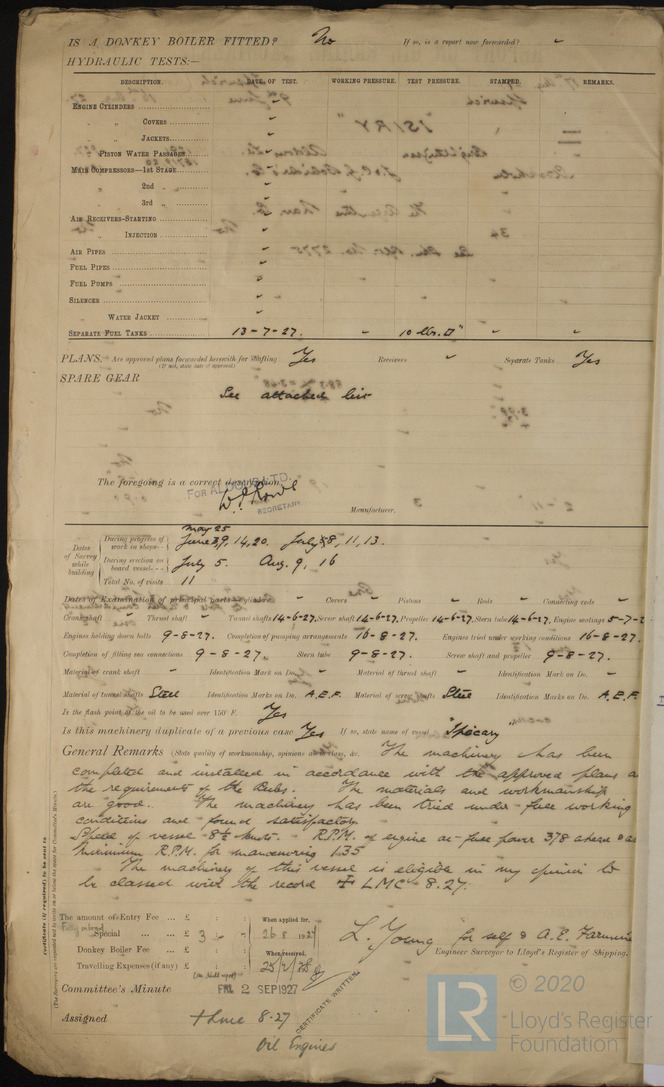 IS A DONKEY BOILER FITTED? No If so, is a report now forwarded? "
HYDRAULIC TESTS:—
DESCRIPTION. DATE OF TEST. WORKING PRESSURE. TEST PRESSURE. STAMPED. REMARKS.
ENGINE CYLINDERS
" " COVERS
" " JACKETS
" PISTON WATER PASSAGES
MAIN COMPRESSORS—1st STAGE
" 2nd "
" 3rd "
AIR RECEIVERS—STARTING
" INJECTION
AIR PIPES
FUEL PIPES
FUEL PUMPS
SILENCER
WATER JACKET
SEPARATE FUEL TANKS 13-7-27. " 10 lbs. □" " "
PLANS. Are approved plans forwarded herewith for shafting Yes Receivers " Separate Tanks Yes
(If not, state date of approval)
SPARE GEAR
See attached list
The foregoing is a correct description,
FOR ALDOUS LTD.
SECRETARY
Manufacturer.
Dates of Survey while building
During progress of work in shops-- May 25 June 14, 20. July 11, 13.
During erection on board vessel--- July 5. Aug. 9, 16
Total No. of visits 11
Dates of Examination of principal parts—Cylinders " Covers " Pistons " Rods " Connecting rods "
Crank shaft " Thrust shaft " Tunnel shafts 14-6-27. Screw shaft 14-6-27. Propeller 14-6-27. Stern tube 14-6-27. Engine seatings 5-7-2
Engines holding down bolts 9-8-27. Completion of pumping arrangements 16-8-27. Engines tried under working conditions 16-8-27.
Completion of fitting sea connections 9-8-27. Stern tube 9-8-27. Screw shaft and propeller 9-8-27.
Material of crank shaft " Identification Mark on Do. " Material of thrust shaft " Identification Mark on Do. "
Material of tunnel shafts Steel Identification Marks on Do. A.E.F. Material of screw shafts Steel Identification Marks on Do. A.E.F.
Is the flash point of the oil to be used over 150° F. Yes
Is this machinery duplicate of a previous case Yes If so, state name of vessel "Specary"
General Remarks (State quality of workmanship, opinions as to class, &c. The machinery has been
completed and installed in accordance with the approved plans a
the requirements of the Rules. The materials and workmanship
are good. The machinery has been tried under full working
conditions and found satisfactory.
Speed of vessel 8½ knots. R.P.M. of engine at full power 378 ahead
Minimum R.P.M. for manoeuvring 135
The machinery of this vessel is eligible in my opinion to
be classed with the record + LMC - 8.27.
Certificate (if required) to be sent to
(The Surveyors are requested not to write on or below the space for Committee's Minute.)
The amount of Entry Fee ... £ : : When applied for,
Special ... ... £ 3 : - : 26 8 1927
Donkey Boiler Fee ... £ : : When received,
Travelling Expenses (if any) £ : :
L. Young for self & A.E. Farmer
Engineer Surveyor to Lloyd's Register of Shipping.
Committee's Minute FRI. 2 SEP 1927
CERTIFICATE WRITTEN.
Assigned + LMC 8.27
Oil Engines
LR © 2020
Lloyd's Register
Foundation